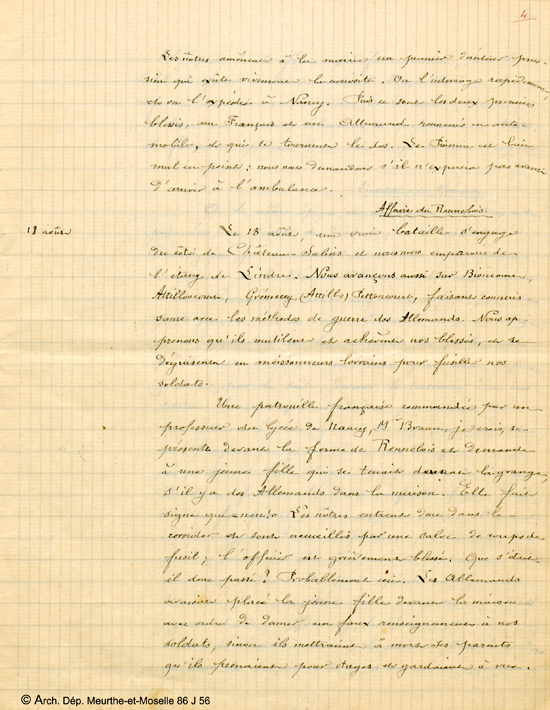 4
Les nôtres amènent à la mairie un premier
qui excite vivement la curiosité. On l'interroge rapidement
et on l'expédie à Nancy. Puis ce sont les deux premiers
blessés, un Français et un Allemand ramenés en auto-
mobile, et qui se tournent le dos. Le est bien
mal en point ; nous nous demandons s'il n'expira pas avant
d'arriver à l'ambulance.
Affaire du Rennelois.
18 août
Le 18 août, une vraie bataille s'engage
du côté de Château-Salins et nous nous emparons de
l'étang de Lindre. Nous avançons aussi sur Bioncourt,
Attilloncourt, Grémecey, (Attillo) Pettoncourt, faisant connais-
sance avec les méthodes de guerre des Allemands. Nous ap-
prenons qu'ils mutilent et achèvent nos blessés, et se
déguisent en moissonneurs lorrains pour fusiller nos
soldats.
Une patrouille française commandée par un
professeur du lycée de Nancy, Mr Braun, je crois, se
présente devant la ferme de Rennelois et demande
à une jeune fille qui se tenait devant la grange,
s'il y a des Allemands dans la maison. Elle fait
signe que non. Les nôtres entrent donc dans le
corridor et sont accueillis par une salve de coups de
fusil ; l'officier est grièvement blessé. Que s'était-
il donc passé ? Probablement ceci. Les Allemands
avaient placé la jeune fille devant la maison
avec ordre de donner un faux renseignement à nos
soldats, sinon ils mettraient à mort ses parents
qu'ils prenaient pour otages et gardaient à vue.
© Arch. Dép. Meurthe-et-Moselle 86 J 56